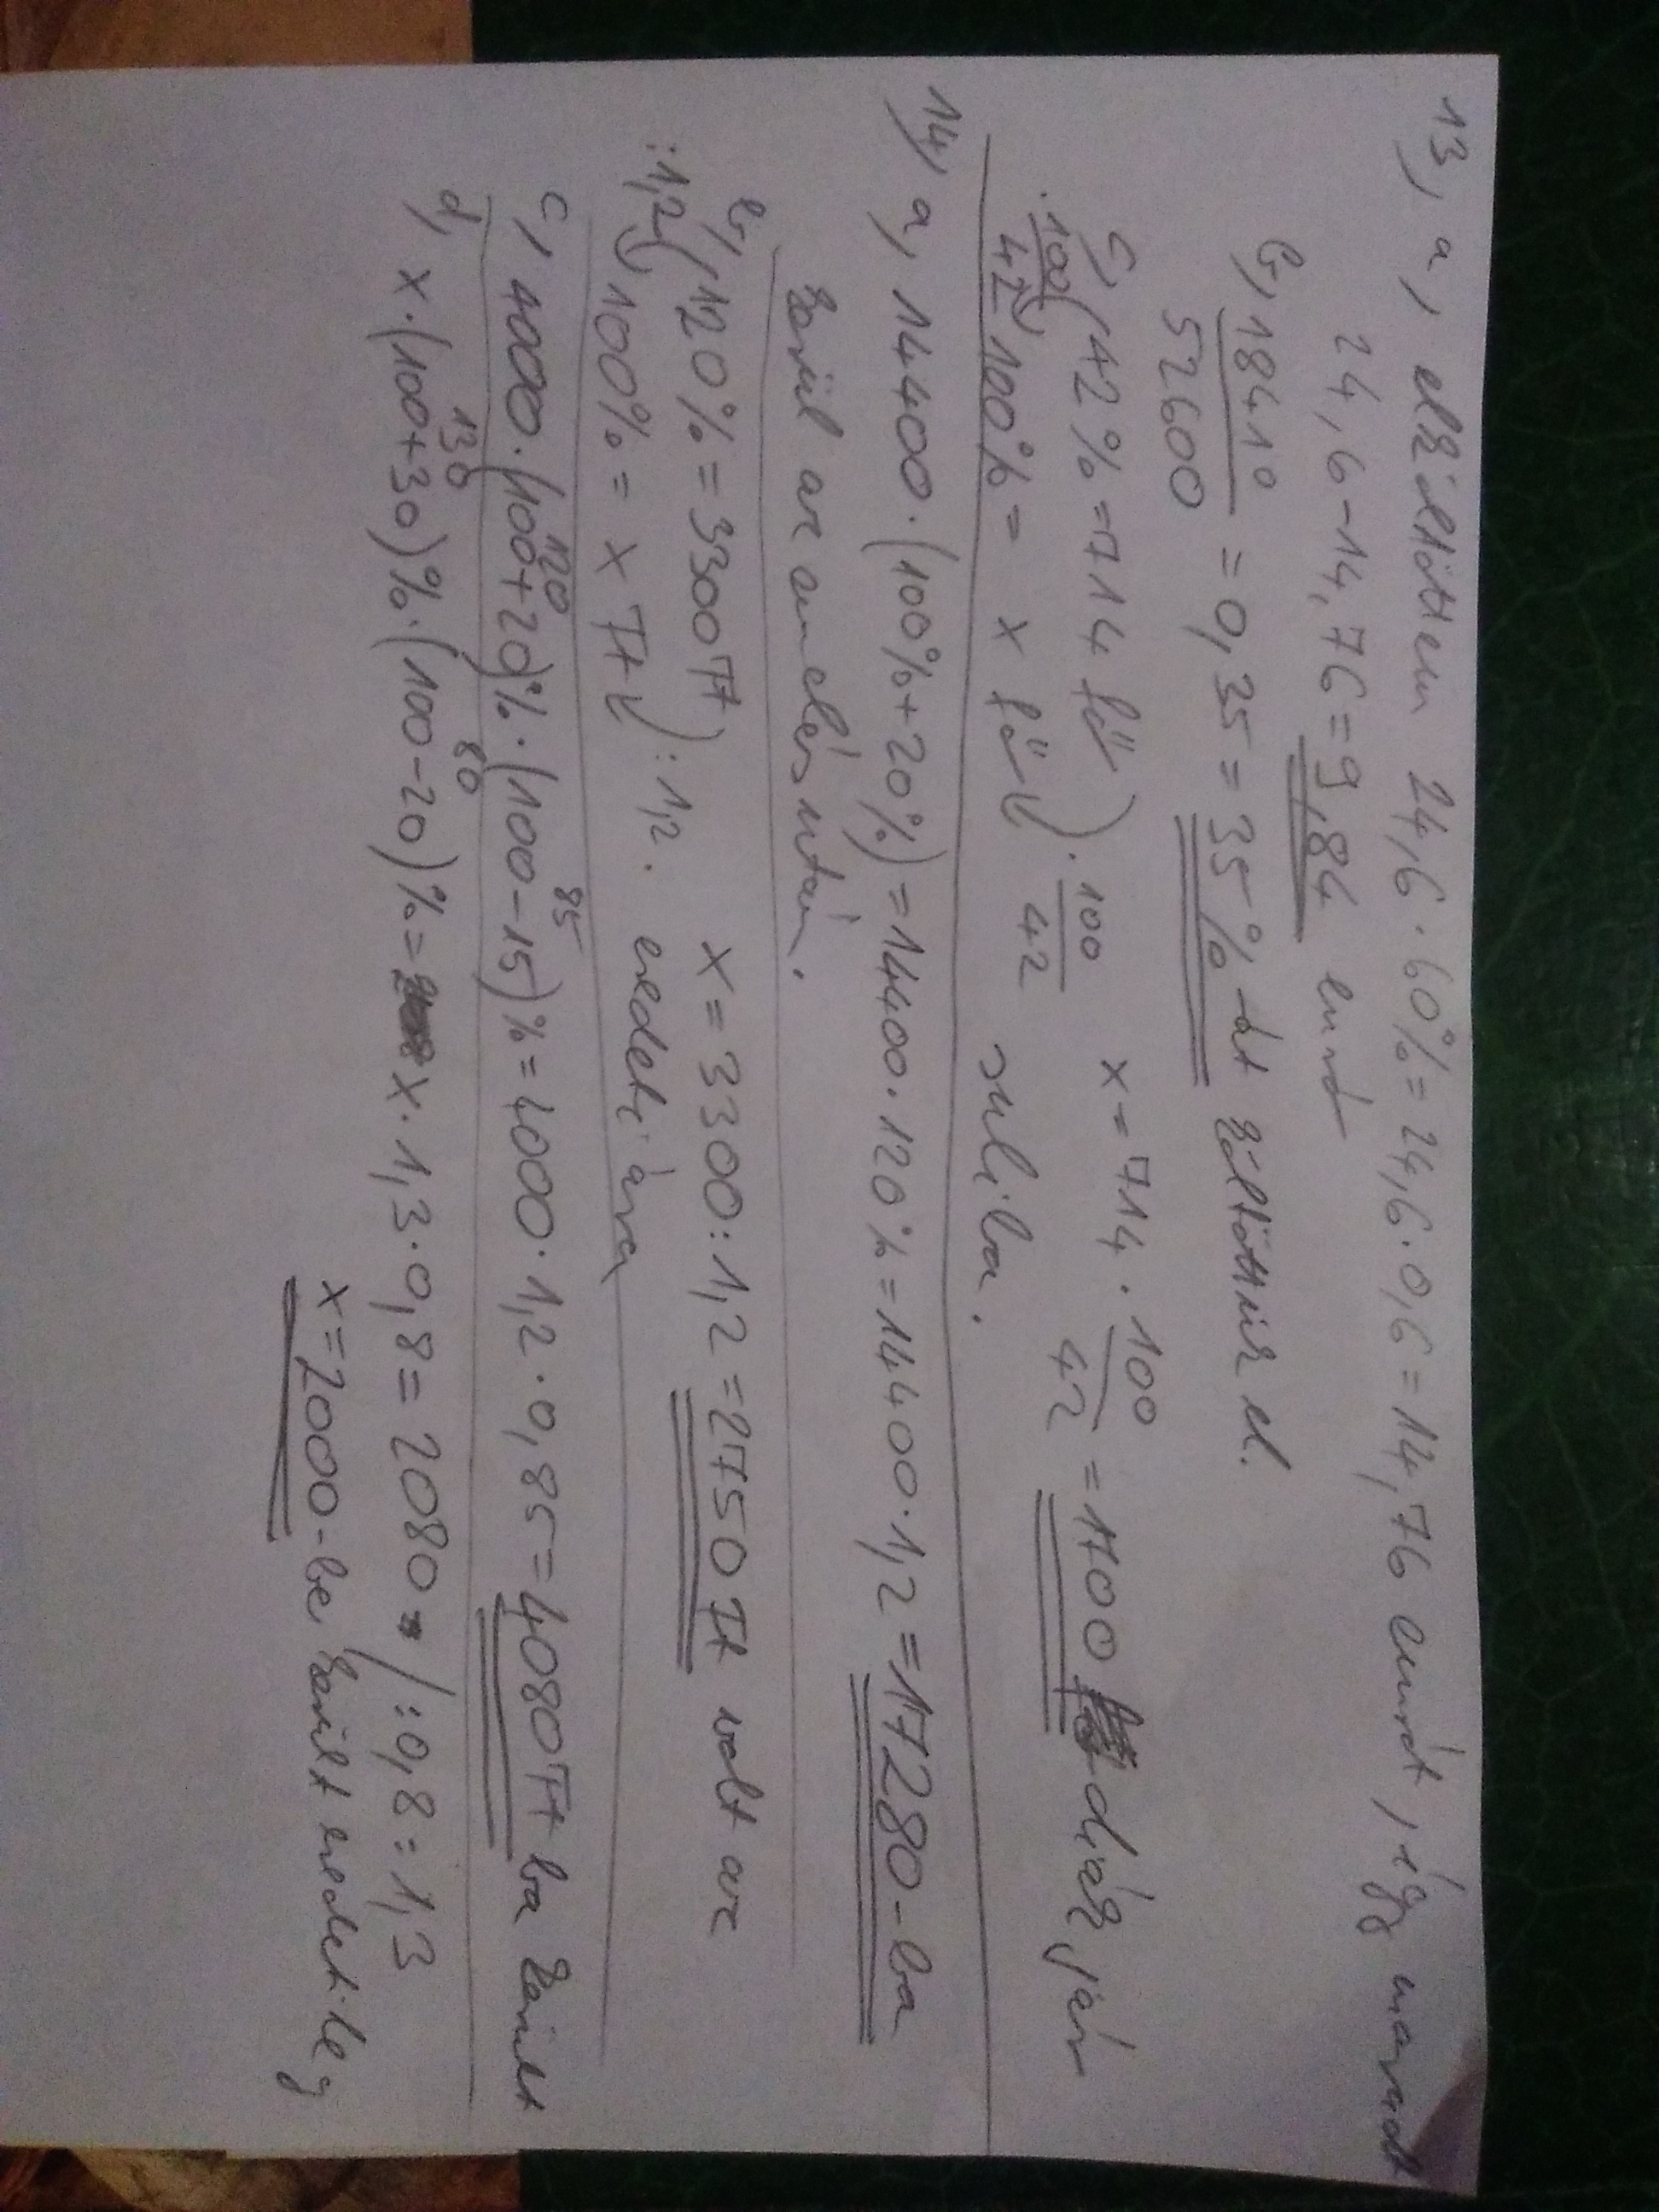 13, a, elköltöttem 24,6 · 60% = 24,6 · 0,6 = 14,76 eurót, így maradt
24,6 - 14,76 = 9,84 euró
b, 18410 / 52600 = 0,35 = 35%-át költöttük el.
c, 42% = 714 fő · 100/42 x = 714 · 100/42 = 1700 diák jár
· 100/42 100% = x fő suliba.
14, a, 14400 · (100% + 20%) = 14400 · 120% = 14400 · 1,2 = 17280-ba
kerül az emelés után.
b, 120% = 3300 Ft :1,2 x = 3300 : 1,2 = 2750 Ft volt az
:1,2 100% = x Ft eredeti ára
c, 4000 · (100+20)% · (100-15)% = 4000 · 1,2 · 0,85 = 4080 Ft ba került
120 85
d, x · (100+30)% · (100-20)% = x · 1,3 · 0,8 = 2080 /:0,8:1,3
130 80
x = 2000-be került eredetileg